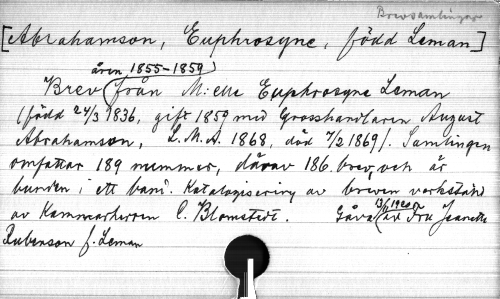 Brevsamlingar
[Abrahamson, Euphrosyne, född Leman]
åren 1855-1859
Brev från M:elle Euphrosyne Leman
(född 24/3 1836, gift 1859 med Grosshandlaren August
Abrahamson, L.M.A. 1868, död 7/2 1869). Samlingen
omfattar 189 nummer, därav 186 brev, och är
bunden i ett band. Katalogisering av breven verkställd
av Kammarherren C. Blomstedt. Gåva av Fru Jeanette
Rubenson f. Leman